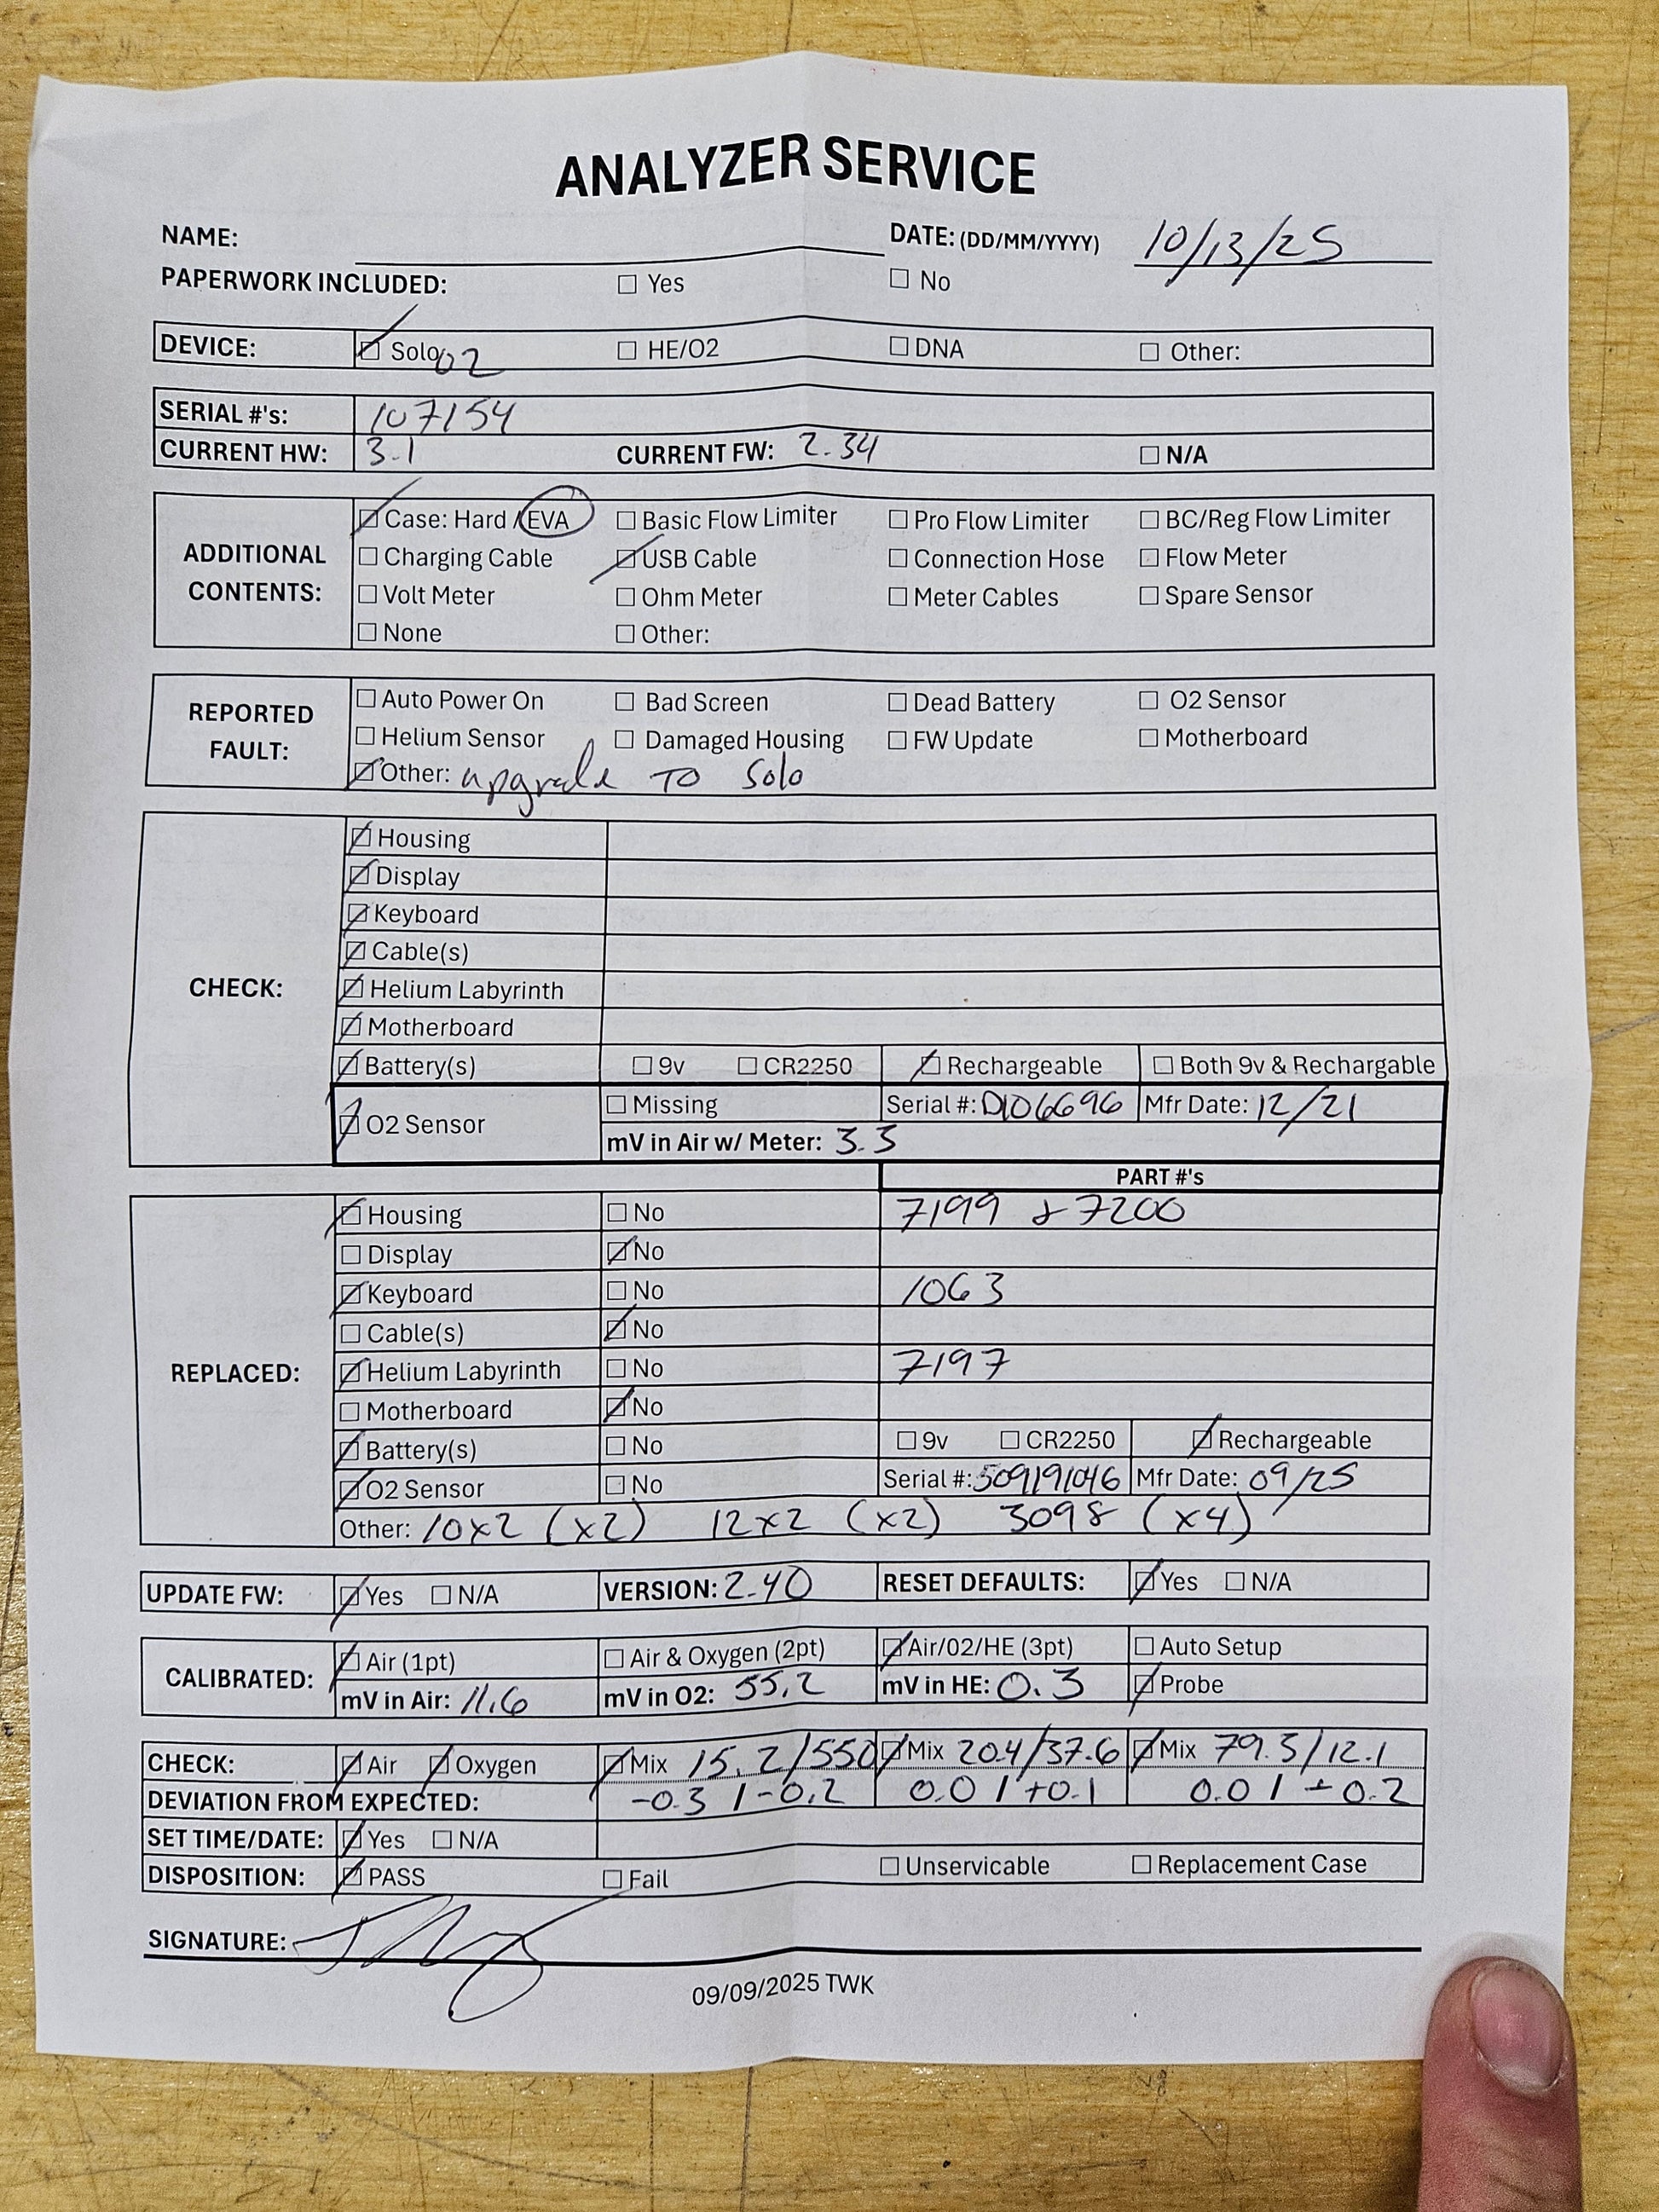 ANALYZER SERVICE
NAME: DATE: (DD/MM/YYYY) 10/13/25
PAPERWORK INCLUDED: ☐ Yes ☐ No
DEVICE: ☑ Solo O2 ☐ HE/O2 ☐ DNA ☐ Other:
SERIAL #'s: 107154
CURRENT HW: 3.1 CURRENT FW: 2.34 ☐ N/A
ADDITIONAL CONTENTS:
☑ Case: Hard / EVA ☐ Basic Flow Limiter ☐ Pro Flow Limiter ☐ BC/Reg Flow Limiter
☐ Charging Cable ☑ USB Cable ☐ Connection Hose ☐ Flow Meter
☐ Volt Meter ☐ Ohm Meter ☐ Meter Cables ☐ Spare Sensor
☐ None ☐ Other:
REPORTED FAULT:
☐ Auto Power On ☐ Bad Screen ☐ Dead Battery ☐ O2 Sensor
☐ Helium Sensor ☐ Damaged Housing ☐ FW Update ☐ Motherboard
☑ Other: upgrade TO Solo
CHECK:
☑ Housing
☑ Display
☑ Keyboard
☑ Cable(s)
☑ Helium Labyrinth
☑ Motherboard
☑ Battery(s) ☐ 9v ☐ CR2250 ☑ Rechargeable ☐ Both 9v & Rechargable
☑ O2 Sensor ☐ Missing Serial #: D106696 Mfr Date: 12/21
mV in Air w/ Meter: 3.3
PART #'s
REPLACED:
☑ Housing ☐ No 7199 & 7200
☐ Display ☑ No
☑ Keyboard ☐ No 1063
☐ Cable(s) ☑ No
☑ Helium Labyrinth ☐ No 7197
☐ Motherboard ☑ No
☑ Battery(s) ☐ No ☐ 9v ☐ CR2250 ☑ Rechargeable
☑ O2 Sensor ☐ No Serial #: 509191046 Mfr Date: 09/25
Other: 10x2 (x2) 12x2 (x2) 3098 (x4)
UPDATE FW: ☑ Yes ☐ N/A VERSION: 2.40 RESET DEFAULTS: ☑ Yes ☐ N/A
CALIBRATED: ☑ Air (1pt) ☐ Air & Oxygen (2pt) ☑ Air/02/HE (3pt) ☐ Auto Setup
mV in Air: 11.6 mV in O2: 55.2 mV in HE: 0.3 ☑ Probe
CHECK: ☑ Air ☑ Oxygen ☑ Mix 15.2/550 ☑ Mix 20.4/37.6 ☑ Mix 79.5/12.1
DEVIATION FROM EXPECTED: -0.3 / -0.2 0.0 / +0.1 0.0 / + 0.2
SET TIME/DATE: ☑ Yes ☐ N/A
DISPOSITION: ☑ PASS ☐ Fail ☐ Unservicable ☐ Replacement Case
SIGNATURE:
09/09/2025 TWK